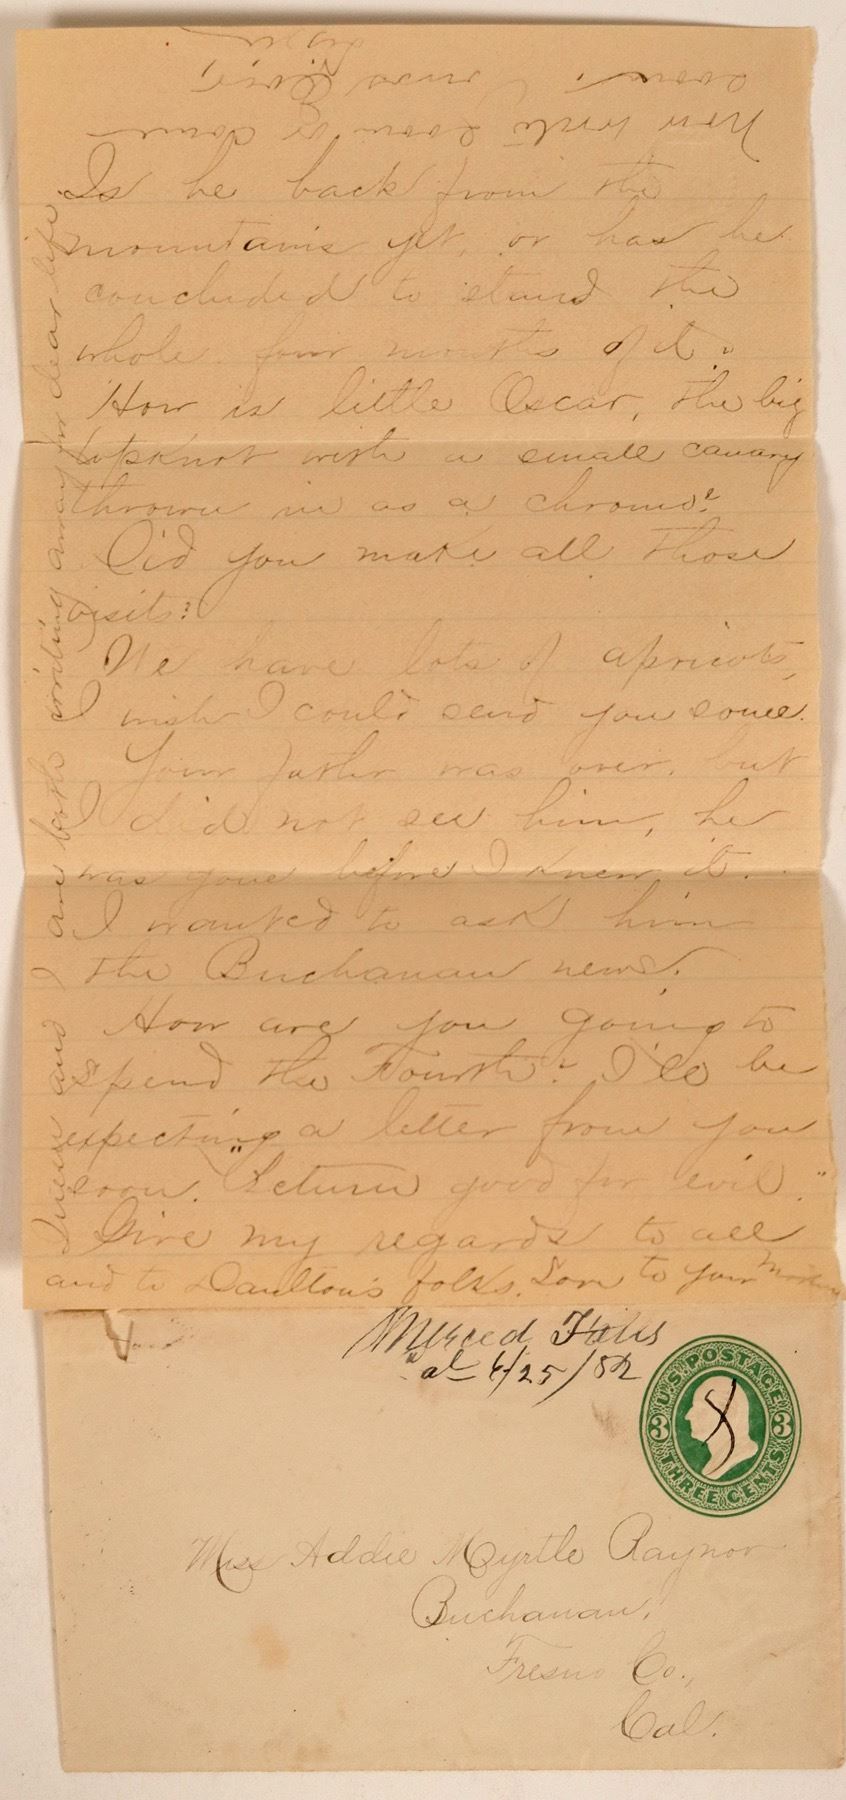 Is he back from the
mountains yet, or has he
concluded to stand the
whole four months of it?
How is little Oscar, the big
topknot with a small canary
thrown in as a chromo?
Did you make all those
visits?
We have lots of apricots,
I wish I could send you some.
Your father was over, but
I did not see him, he
was gone before I knew it.
I wanted to ask him
the Buchanan news.
How are you going to
spend the Fourth? I'll be
expecting a letter from you
soon. "Return good for evil."
Give my regards to all
and to Daulton's folks. Love to your Mother
and I are both writing away for dear life.
Now write soon or come
soon.
Merced Falls
Cal 6/25/82
U.S. POSTAGE
3 3
THREE CENTS
Miss Addie Myrtle Raynor
Buchanan,
Fresno Co.,
Cal.